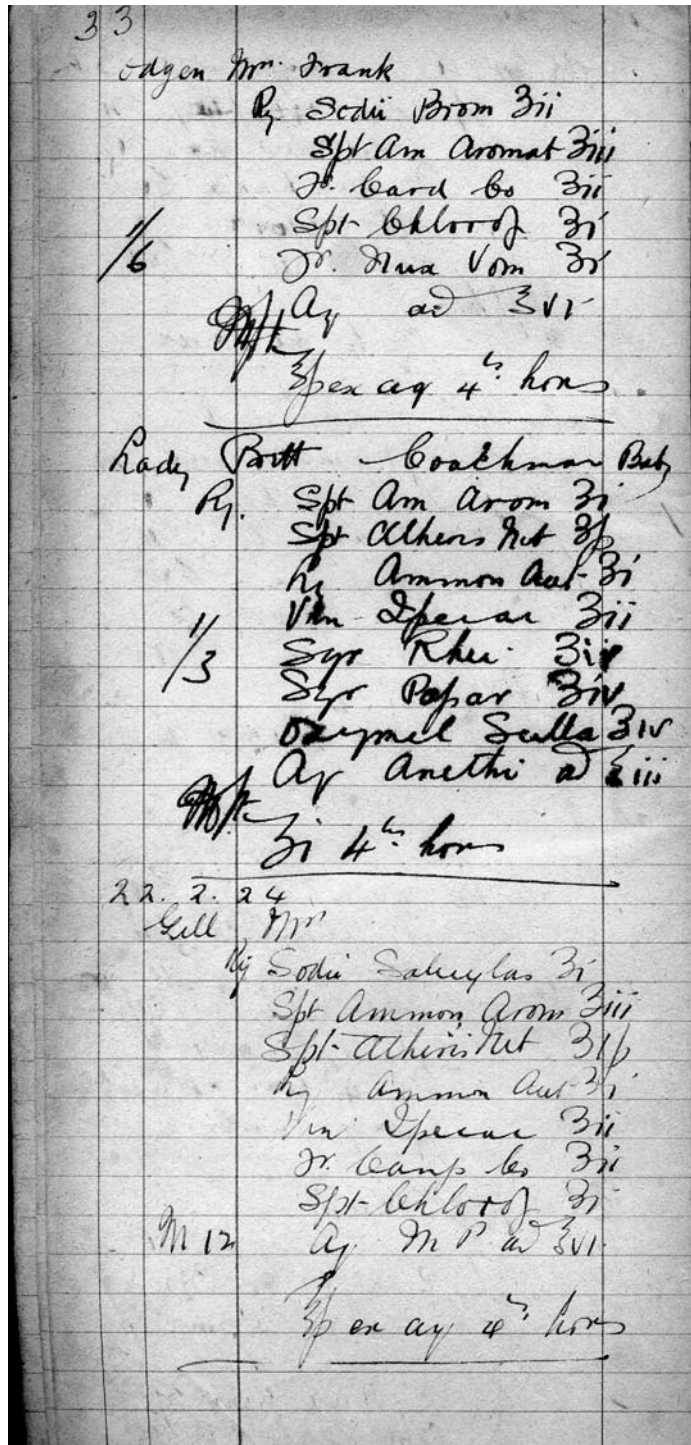 33
Odgen Mrs. Frank
Rx Sodii Brom ʒii
Spt Am Aromat ʒiii
Tr. Card Co ʒii
Spt Chlorof ʒi
1/6 Tr. Nux Vom ʒi
Aq ad ℥vi
℥ß ex aq 4th hours
Lady Bott Coachman Baby
Rx. Spt Am Arom ʒi
Spt Atheris Nit ʒß
Ammon Aut ʒi
Vin Ipecac ʒii
1/3 Syr Rhei ʒiv
Syr Papav ʒiv
Oxymel Scilla ʒiv
Aq Anethi ad ℥iii
ʒi 4th hours
22. 2. 24
Gill Mrs
Rx Sodii Salicylas ʒi
Spt Ammon Arom ʒiii
Spt Atheris Nit ʒiß
Ammon Aut ʒi
Vin Ipecac ʒii
Tr. Camp Co ʒii
Spt Chlorof ʒi
M 12 Aq M P ad ℥vi
℥ß ex aq 4th hours